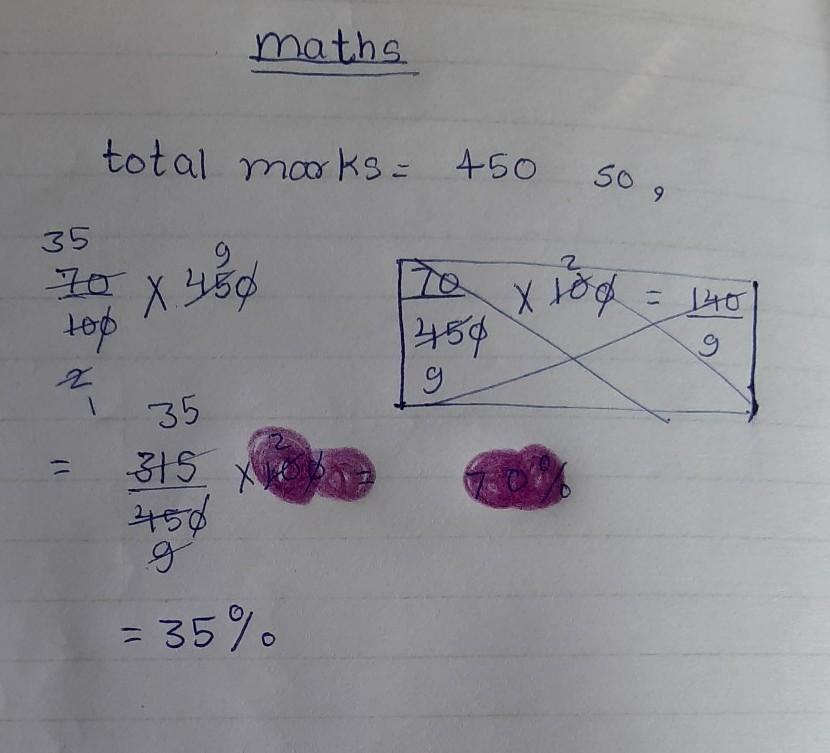 maths
total marks = 450 so,
35 9
70/100 × 450
2
1
2
70/450 × 100 = 140/9
9
35
2
= 315/450 × 100 = 70%
9
= 35%